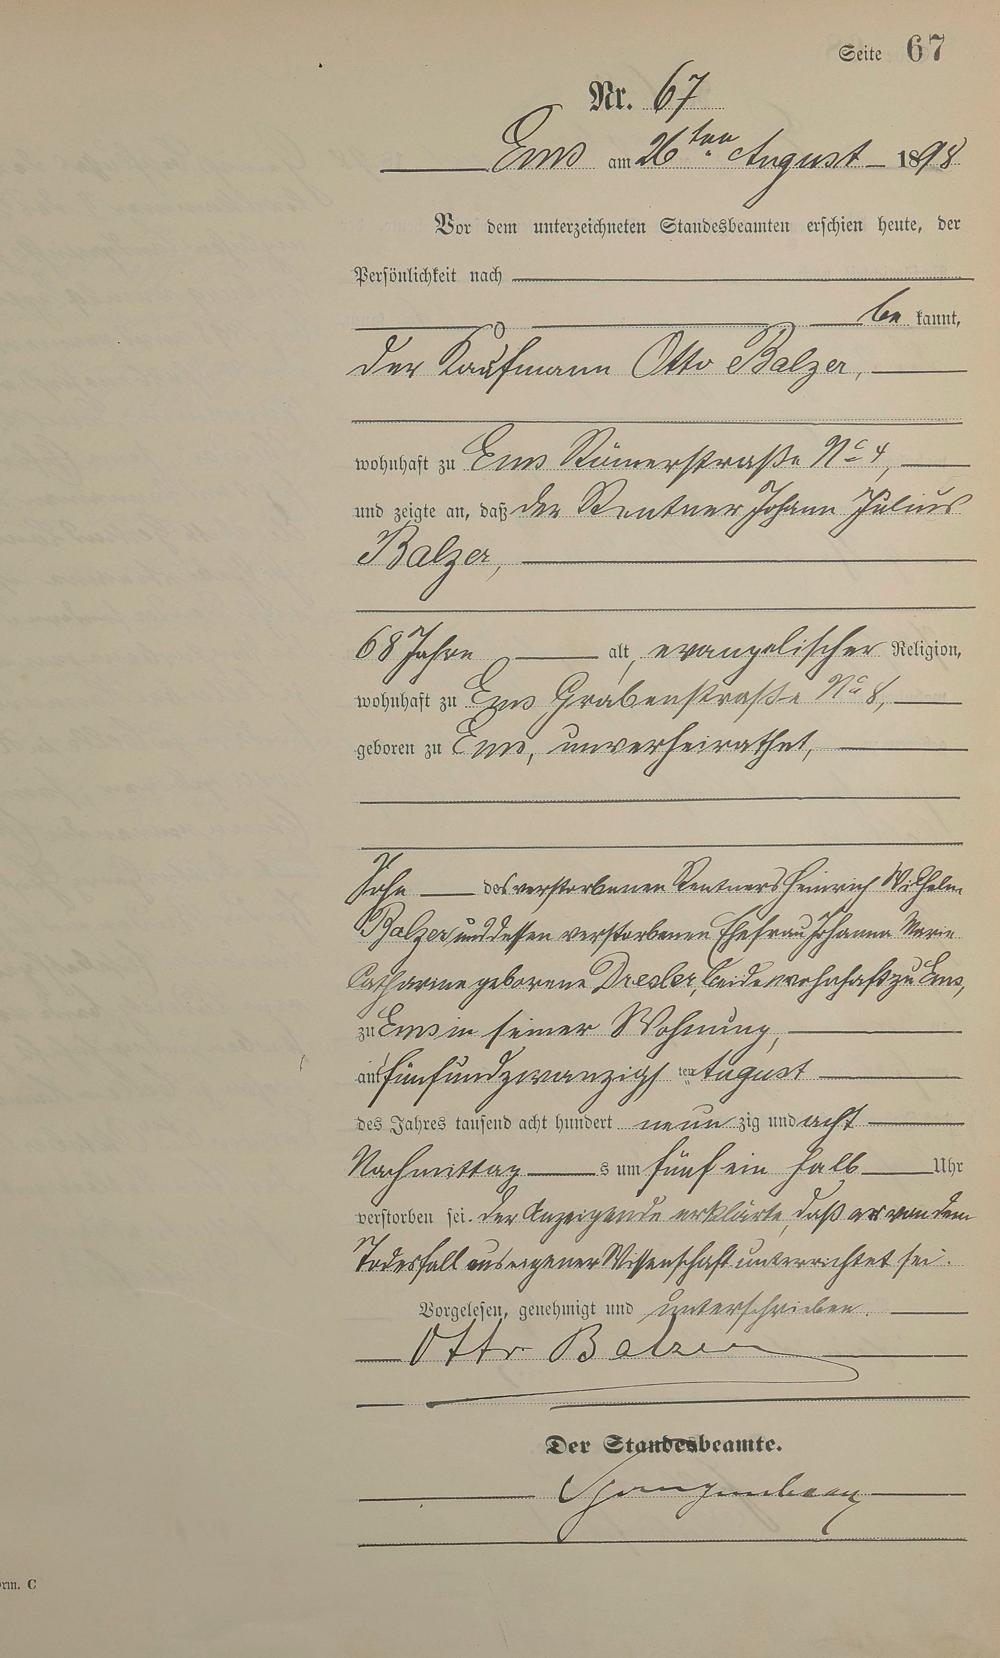 Seite 67
Nr. 67
Ems am 26ten August 1898
Vor dem unterzeichneten Standesbeamten erschien heute, der
Persönlichkeit nach
be kannt,
der Kaufmann Otto Balzer,
wohnhaft zu Ems Römerstraße No 4,
und zeigte an, daß der Rentner Johann Julius
Balzer,
68 Jahre alt, evangelischer Religion,
wohnhaft zu Ems Grabenstraße No 8,
geboren zu Ems, unverheirathet,
Sohn des verstorbenen Rentners Heinrich Wilhelm
Balzer und dessen verstorbenen Ehefrau Johanna Marie
Catharine geborene Dresler, beide wohnhaft zu Ems,
zu Ems in seiner Wohnung,
am fünfundzwanzigsten August
des Jahres tausend acht hundert neun zig und acht
Nachmittag s um fünf ein halb Uhr
verstorben sei. Der Anzeigende erklärte, daß er von dem
Todesfall aus eigener Wissenschaft unterrichtet sei.
Vorgelesen, genehmigt und unterschrieben.
Otto Balzer
Der Standesbeamte.
orm. C